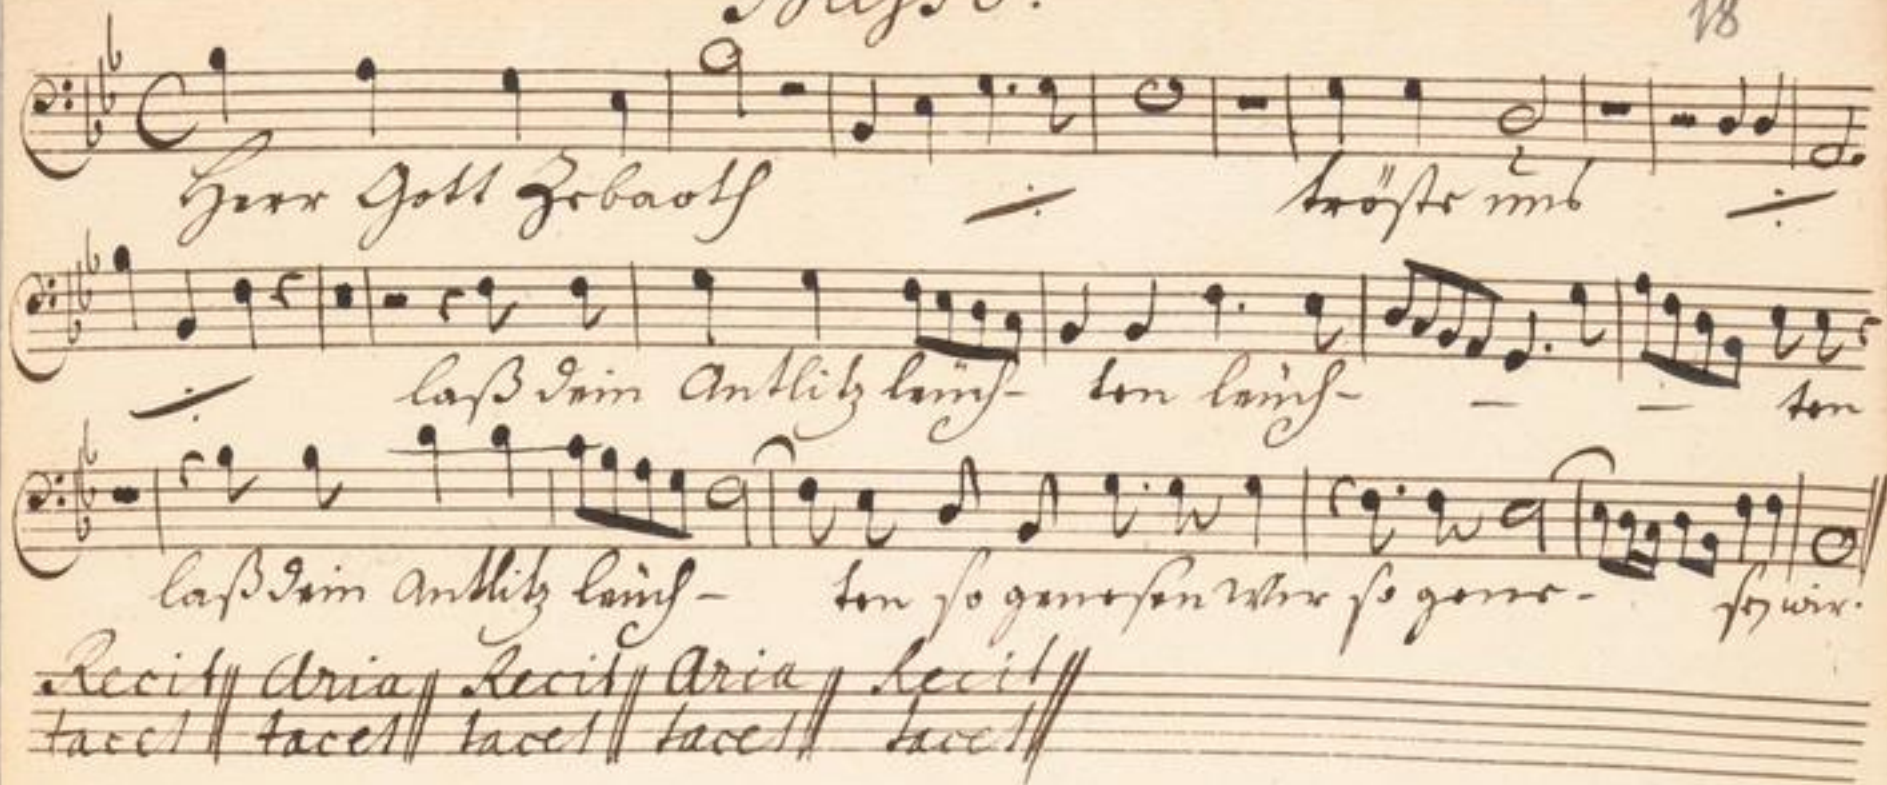 Basso.
18
Herr Gott Zebaoth ·/· tröste uns ·/·
·/· laß dein Antlitz leüch- ten leüch- - - ten
laß dein Antlitz leüch- ten so genesen wir so gene- sen wir.
Recit Aria Recit Aria Recit
tacet tacet tacet tacet tacet